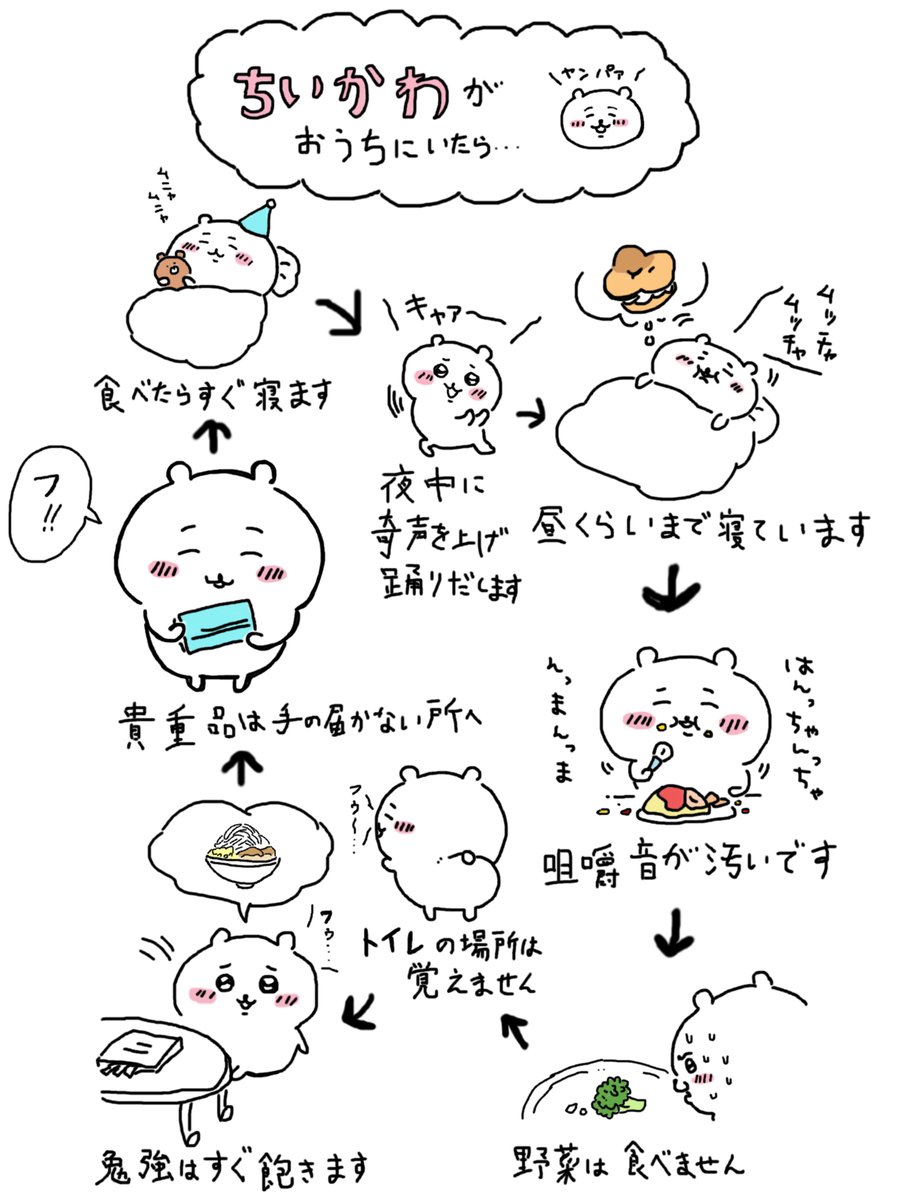 ちいかわが
おうちにいたら…
ヤンパァ
ムニャ
ムニャ
食べたらすぐ寝ます
キャアー
夜中に
奇声を上げ
踊りだします
ムッチャ
ムッチャ
昼くらいまで寝ています
はんっちゃんっちゃ
んっまんっま
咀嚼音が汚いです
野菜は食べません
フゥ〜…
トイレの場所は
覚えません
フゥ…
勉強はすぐ飽きます
貴重品は手の届かない所へ
フ!!